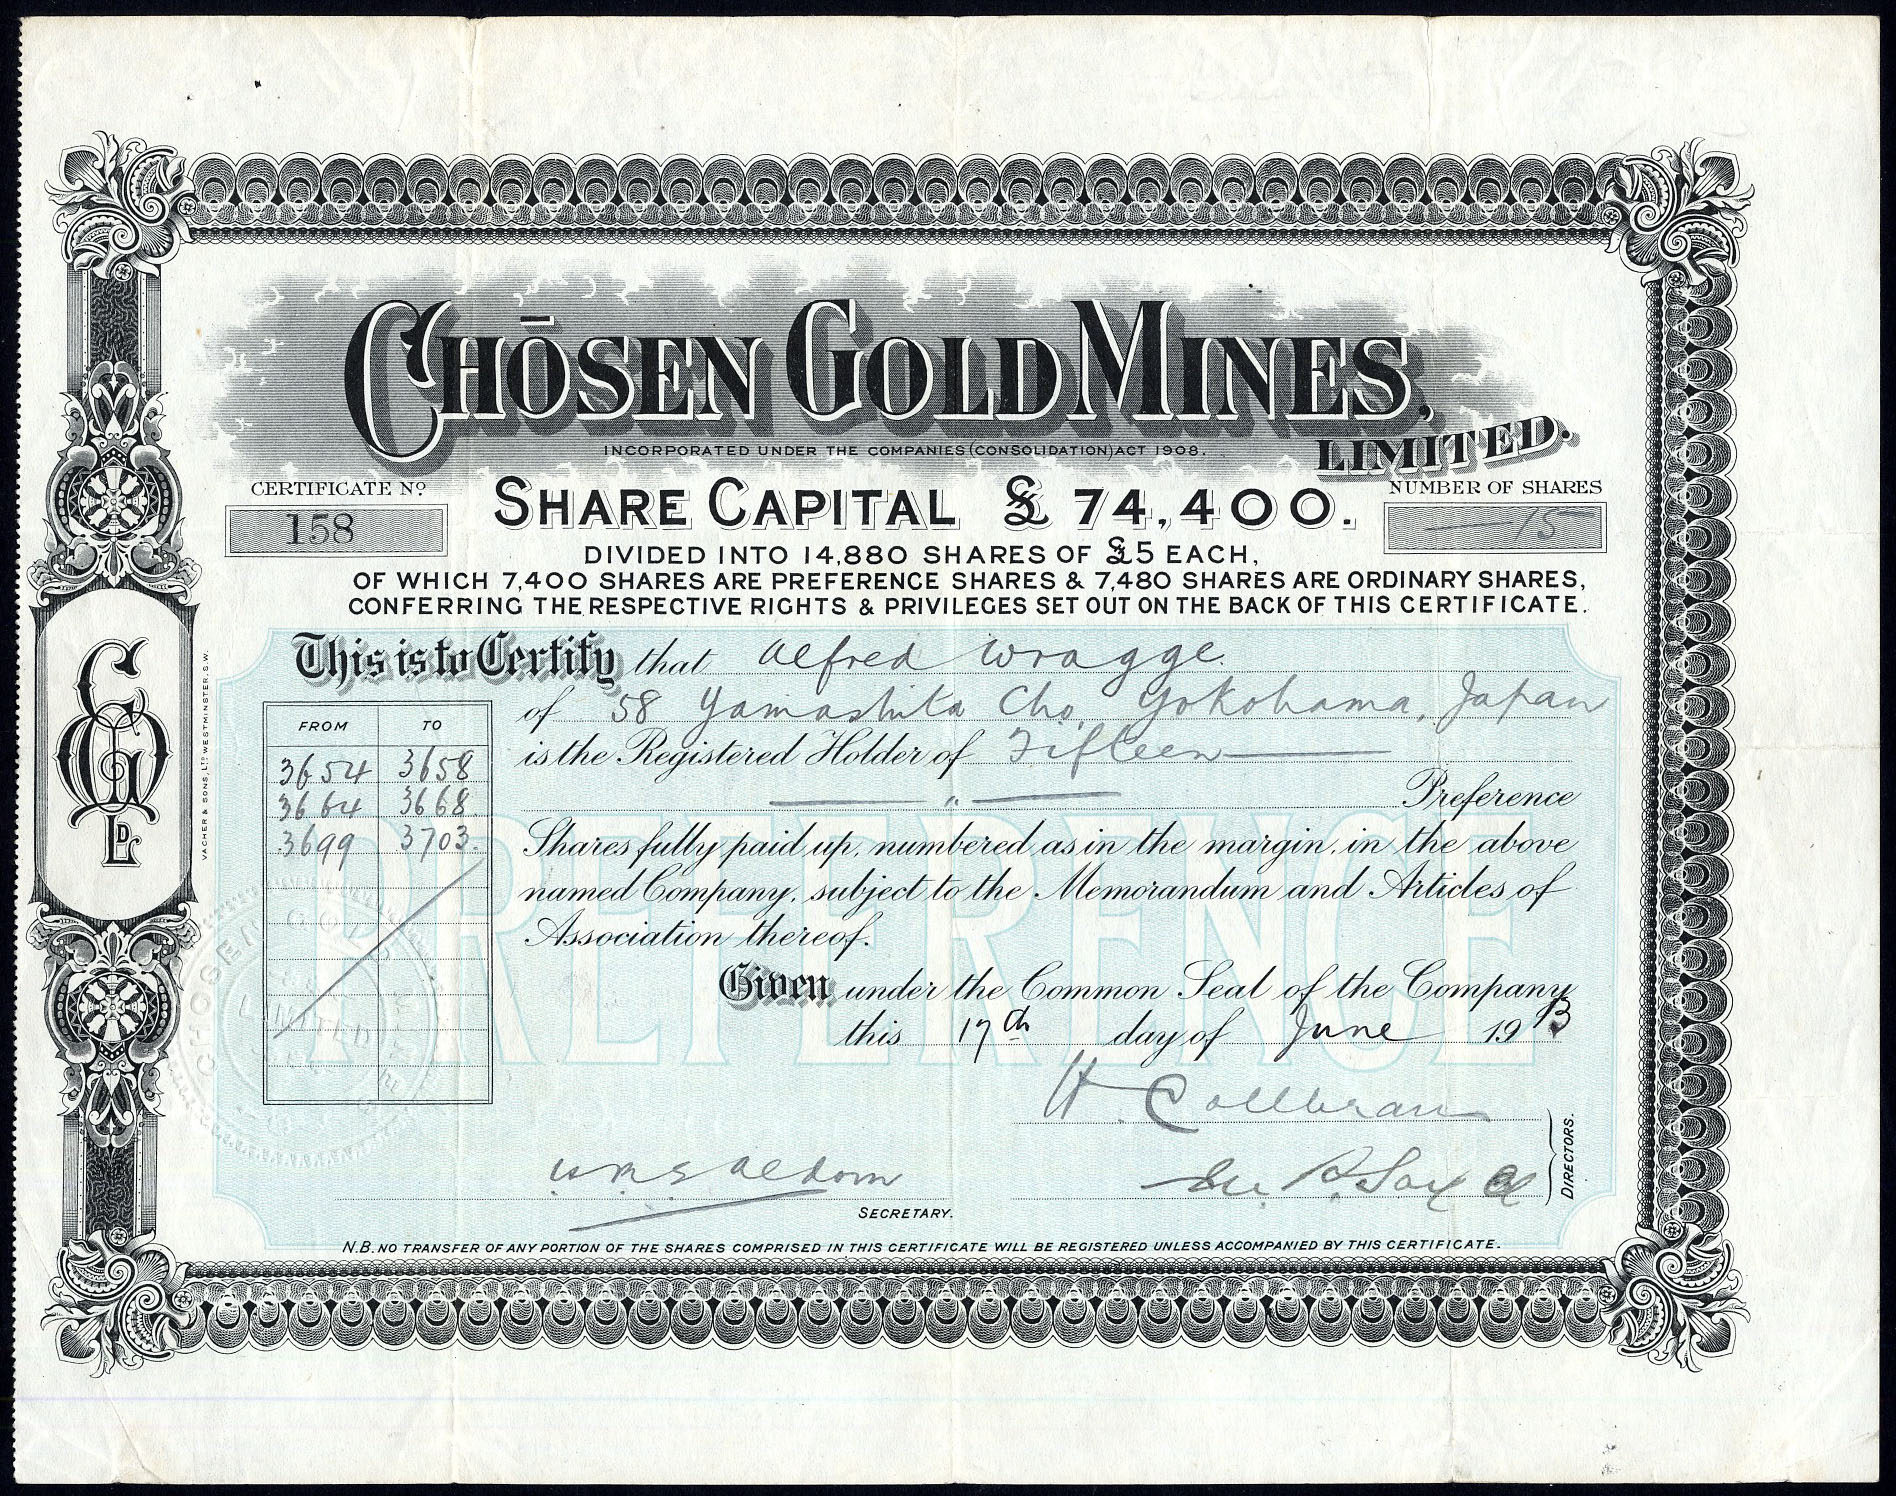 CHŌSEN GOLD MINES,
LIMITED.
INCORPORATED UNDER THE COMPANIES (CONSOLIDATION) ACT 1908.
CERTIFICATE No.
158
SHARE CAPITAL £ 74,400.
NUMBER OF SHARES
— 15
DIVIDED INTO 14,880 SHARES OF £5 EACH,
OF WHICH 7,400 SHARES ARE PREFERENCE SHARES & 7,480 SHARES ARE ORDINARY SHARES,
CONFERRING THE RESPECTIVE RIGHTS & PRIVILEGES SET OUT ON THE BACK OF THIS CERTIFICATE.
This is to Certify that Alfred Wragge
of 58 Yamashita Cho, Yokohama, Japan
is the Registered Holder of Fifteen —
— " — Preference
Shares fully paid up, numbered as in the margin, in the above
named Company, subject to the Memorandum and Articles of
Association thereof.
FROM TO
3654 3658
3664 3668
3699 3703
PREFERENCE
Given under the Common Seal of the Company
this 17th day of June 1913
H. Collbran
DIRECTORS.
SECRETARY.
N.B. NO TRANSFER OF ANY PORTION OF THE SHARES COMPRISED IN THIS CERTIFICATE WILL BE REGISTERED UNLESS ACCOMPANIED BY THIS CERTIFICATE.
CGM
LD
VACHER & SONS, LTD WESTMINSTER, S.W.
CHOSEN GOLD MINES
LIMITED